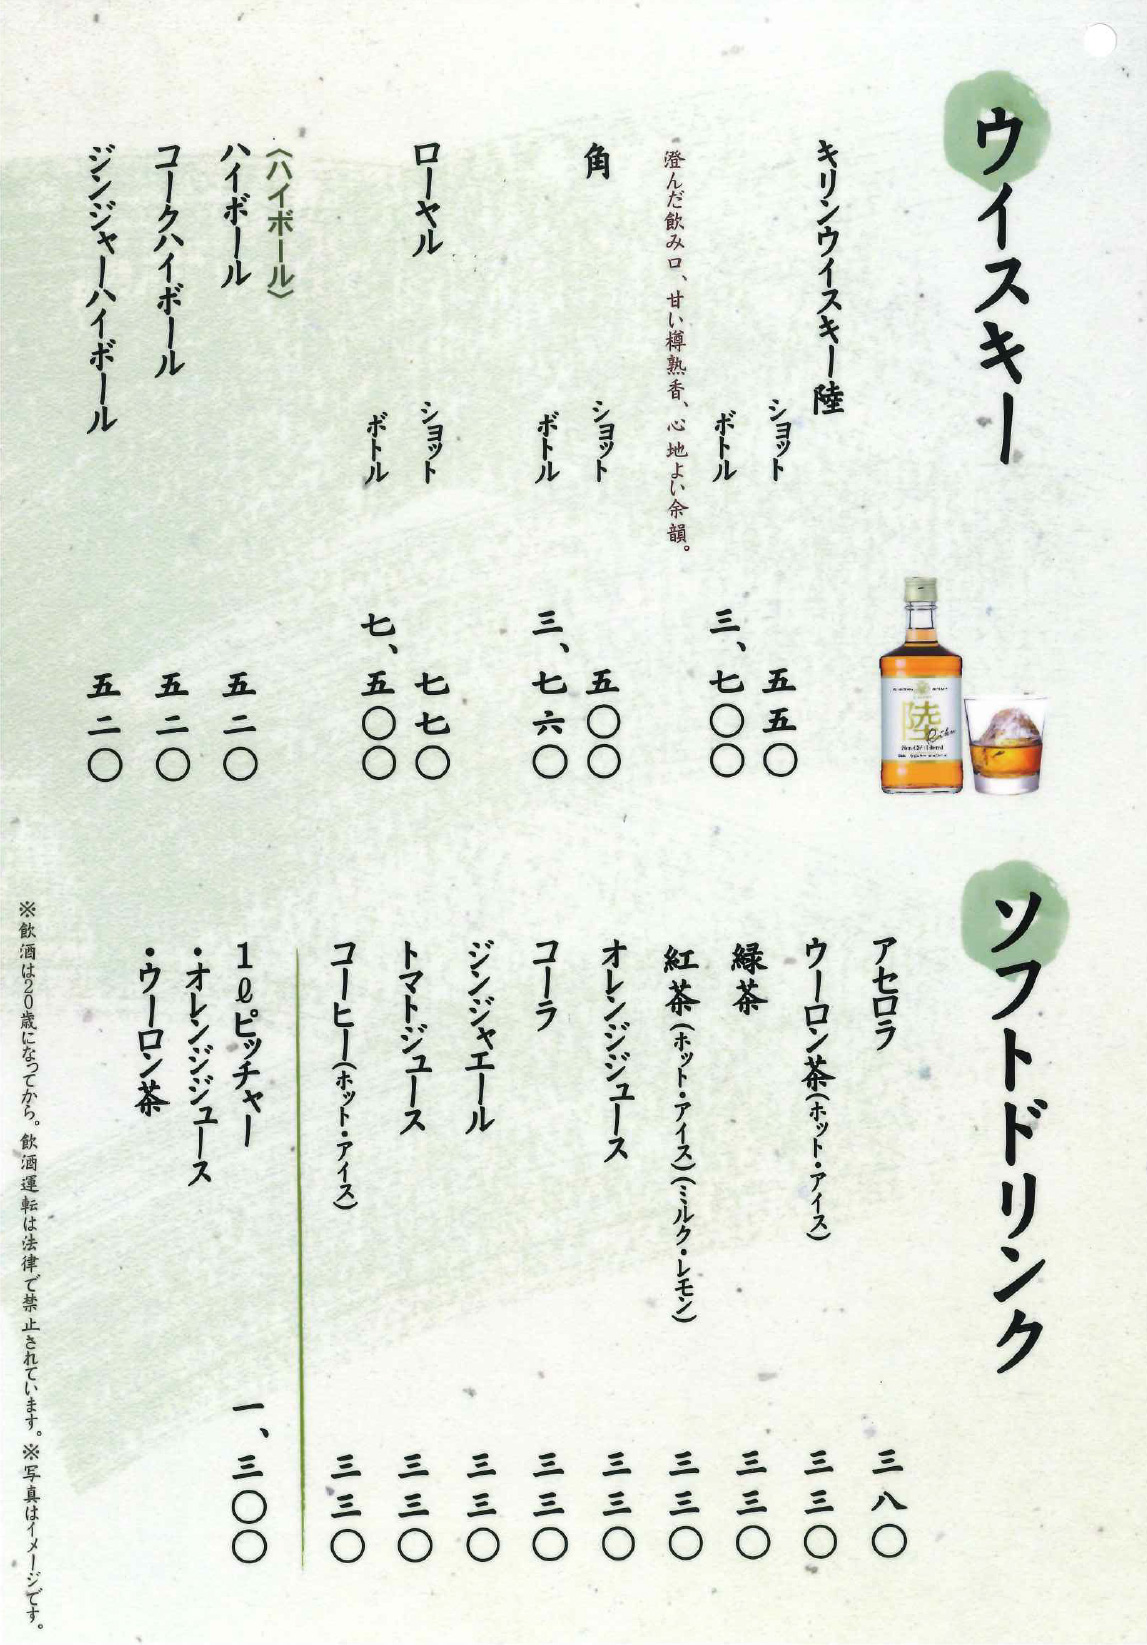 ウイスキー
キリンウイスキー陸
ショット 五五〇
ボトル 三、七〇〇
澄んだ飲み口、甘い樽熟香、心地よい余韻。
角
ショット 五〇〇
ボトル 三、七六〇
ローヤル
ショット 七七〇
ボトル 七、五〇〇
〈ハイボール〉
ハイボール 五二〇
コークハイボール 五二〇
ジンジャーハイボール 五二〇
陸
ソフトドリンク
アセロラ 三八〇
ウーロン茶(ホット・アイス) 三三〇
緑茶 三三〇
紅茶(ホット・アイス)(ミルク・レモン) 三三〇
オレンジジュース 三三〇
コーラ 三三〇
ジンジャエール 三三〇
トマトジュース 三三〇
コーヒー(ホット・アイス) 三三〇
1ℓピッチャー 一、三〇〇
・オレンジジュース
・ウーロン茶
※飲酒は20歳になってから。飲酒運転は法律で禁止されています。※写真はイメージです。